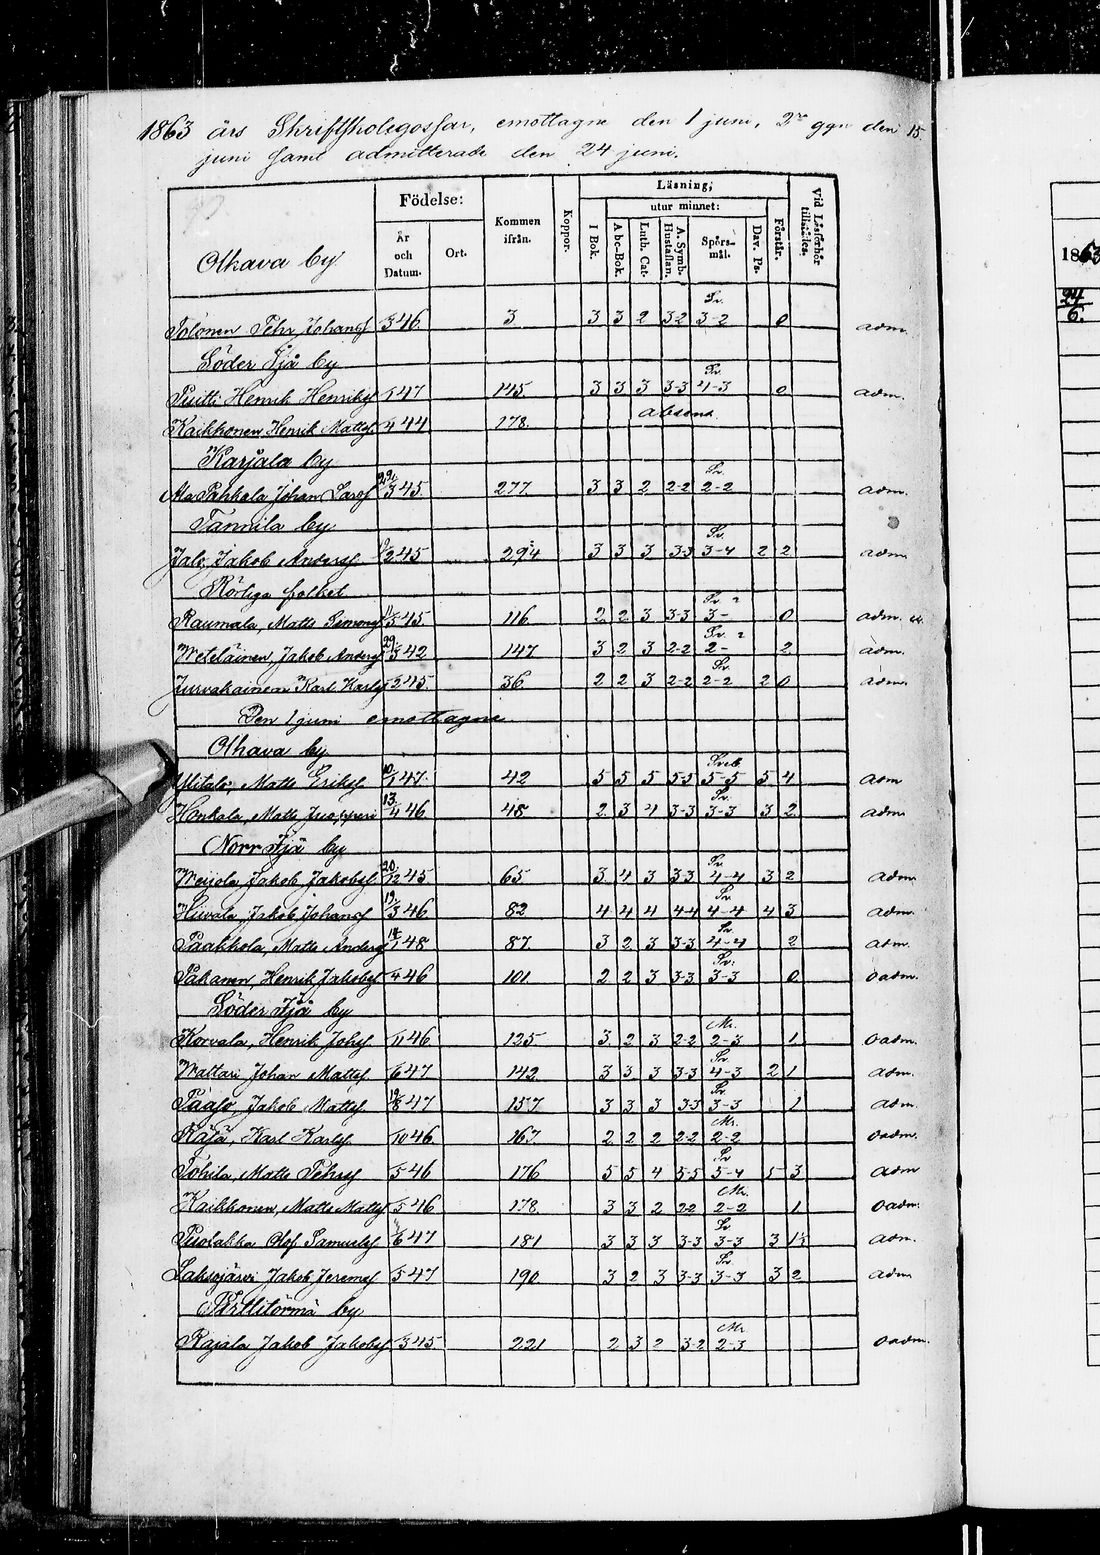 1863 års Skriftskolegossar, emottagne den 1 juni, 2re ggn den 15
juni samt admitterade den 24 juni.
Födelse: Kommen ifrån. Koppor. Läsning; Vid Läsförhör tillstädes.
utur minnet:
År och Datum. Ort. I Bok. Abc-Bok. Luth. Cat. A. Symb. Hustaflan. Spörs-mål. Dav. Ps. Förstår.
Olhava by
Tolonen Pehr Johansf 346 3 3 3 2 3-2 Sv. 3-2 0 adm.
Söder Ijå by
Puitti Henrik Henriksf 47 145 3 3 3 3-3 Sv. 4-3 0 adm.
Kaikkonen, Henrik Mattsf 44 178. absens.
Karjala by
Ala Pahkala Johan Larsf 345. 277 3 3 2 2-2 Sv. 2-2 adm.
Tannila by
Jalo, Jakob Andersf 245 294 3 3 3 3-3 Sv. 3-4 2 2 adm
Rörliga folket
Raumala, Matts Simonsf 45 116 2 2 3 3-3 Sv. 3- 0 adm.
Weteläinen, Jakob Andersf 29 342 147 3 2 3 2-2 Sv. 2- 2 adm.
Jurvakainen Karl Karlsf 245. 36 2 2 3 2-2 Sv. 2-2 2 0 adm
Den 1 juni emottagne
Olhava by
Ylitalo, Matts Eriksf 10 147. 42 5 5 5 5-5 Sveb 5-5 5 4 adm
Honkala, Matts Juopperi 13 446 48 2 3 4 3-3 Sv. 3-3 3 2 adm
Norr Ijå by
Weijola, Jakob Jakobsf 20 12 45 65 3 4 3 3-3 Sv. 4-4 3 2 adm
Hiivala, Jakob Johansf 19 346 82 4 4 4 4-4 Sv. 4-4 4 3 adm.
Paakkola, Matts Andersf 148 87 3 2 3 3-3 Sv. 4-4 2 adm.
Pakanen, Henrik Jakobsf 446 101 2 2 3 3-3 Sv. 3-3 0 oadm.
Söder Ijå by
Korvala, Henrik Johsf 11 46 125 3 2 3 2-2 Mr. 2-3 1 oadm.
Wattari Johan Mattsf. 647 142 3 3 3 3-3 Sv. 4-3 2 1 adm.
Paaso, Jakob Mattsf. 19 847 157 3 3 3 3-3 Sv. 3-3 1 adm.
Räjä, Karl Karlsf 10 46 167. 2 2 2 2-2 Mr. 2-2 oadm.
Tohila, Matts Pehrsf 546 176 5 5 4 5-5 Sv. 5-4 5 3 adm
Kaikkonen, Matts Mattsf 546 178 3 3 2 2-2 Mr. 2-2 1 oadm.
Puolakka Olof Samuelsf 647 181 3 3 3 3-3 Sv. 3-3 3 adm.
Laksojärvi Jakob Jeremsf 547 190 3 2 3 3-3 Sv. 3-3 3 2 adm
Pirttitörmä by
Rajala Jakob Jakobsf 345 221 2 3 2 3-2 Mr. 2-3 oadm.
1863
24/6.